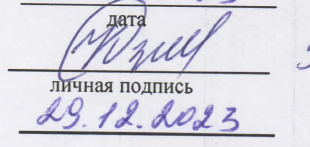 дата
личная подпись
29.12.2023